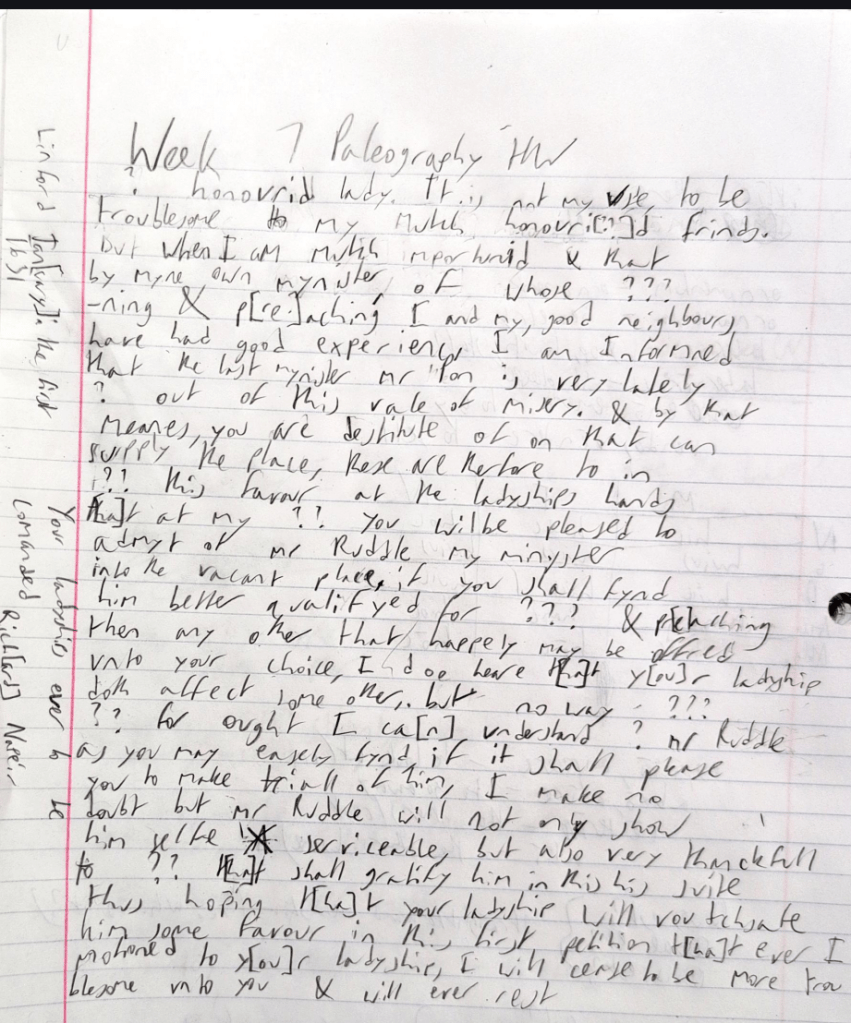 Week 7 Paleography HW
? honourid lady. It is not my vse, to be
troublesome to my mutch honouri[?]d frinds.
but when I am mutch importunid & that
by myne own mynister, of whose ???
-ning & p[re]aching I and my good neighbours
have had good experienc, I am Informned
that the last mynister mr Ton is very lately
? out of this vale of misery. & by that
meanes, you are destitute of on that can
supply the place, these are therfore to in
??? this favour at the ladyships hands
t[ha]t at my ?? you wilbe pleased to
admyt of mr Ruddle my minyster
into the vacant place, if you shall fynd
him better qualifyed for ??? & p[re]aching
then any other that happely may be offred
vnto your choice, I doe heare t[ha]t y[ou]r ladyship
doth affect some other, but no way ???
?? for ought I ca[n] understand ? mr Ruddle
as you may easely fynd if it shall please
you to make triall of him, I make no
doubt but mr Ruddle will not only show
him selfe serviceable, but also very thanckfull
to ?? t[ha]t shall gratify him in this his suite
thus hoping t[ha]t your ladyship will voutchsafe
him some favour in this first petition t[ha]t ever I
motioned to y[ou]r ladyship, I will cease to be more trou
blesome vnto you & will ever rest
Your ladyships ever to be
comanded Rich[ard] Napeir
Linford Ian[uary]: the first
1631